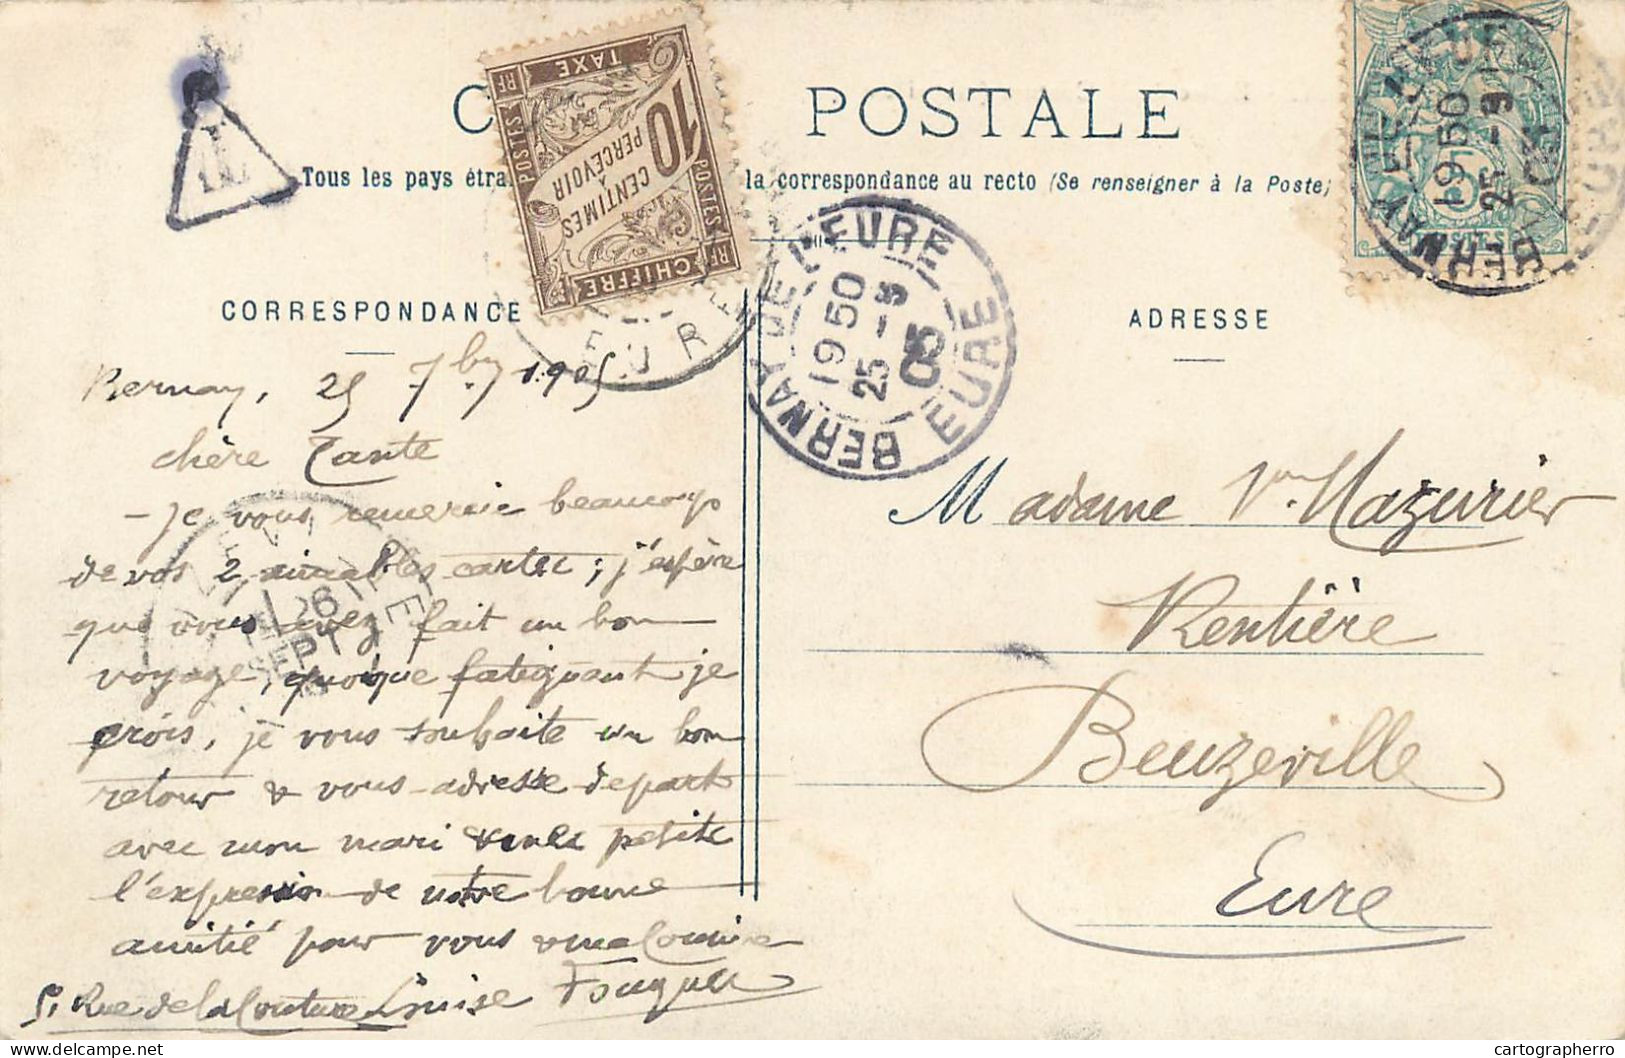 POSTALE
Tous les pays étra la correspondance au recto (Se renseigner à la Poste)
10
CENTIMES
A
PERCEVOIR
CHIFFRE
TAXE
POSTES
POSTES
RF
RF
CORRESPONDANCE
ADRESSE
BERNAY DE L'EURE
19 50
25 - 9
05
EURE
BERNAY DE L'EURE
19 50
25 - 9
05
EURE
Bernay, 25 7bre 1905
chère Tante
- Je vous remercie beaucoup
de vos 2 aimables cartes ; j'espère
que vous avez fait un bon
voyage, quoique fatiguant je
crois, je vous souhaite un bon
retour & vous adresse de part
avec mon mari & petite
l'expression de notre bonne
amitié pour vous
5, Rue de la Couture Louise Fouquet
26
SEPT
Madame Vve Mazurier
Rentière
Beuzeville
Eure
delcampe.net
cartographerro